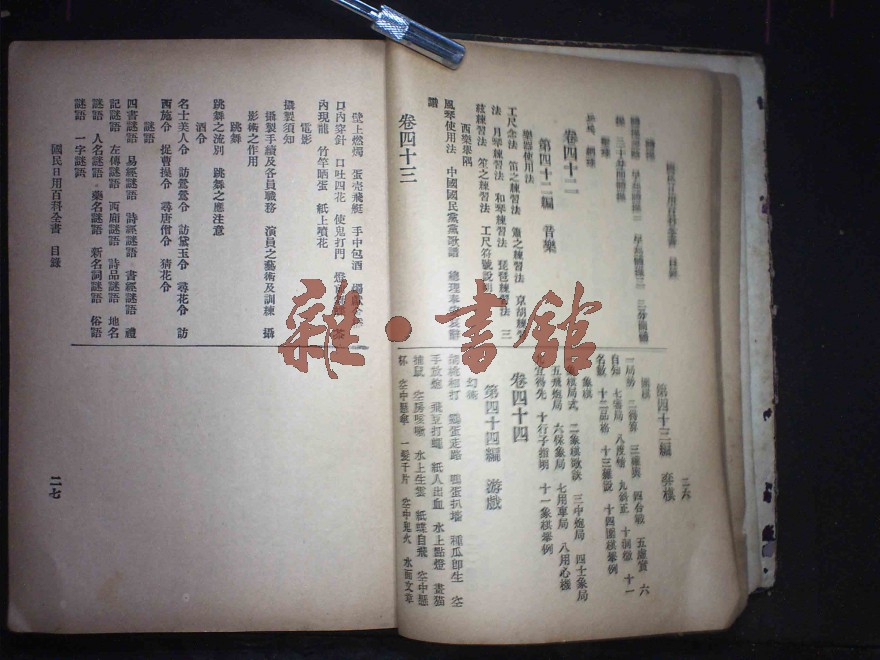 二六
卷四十二
第四十二編 音樂
樂器使用法
工尺念法 笛之練習法 簫之練習法 京胡練習
法 月琴練習法 和琴練習法 琵琶練習法 三
絃練習法 笙之練習法 工尺符號說
西樂舉隅
風琴使用法 中國國民黨黨歌譜
譜
卷四十三
第四十三編 弈棋
圍棋
自知 七審局 八度情 九斜正 十洞微 十一
名數 十二品格 十三雜說 十四圍棋舉例
象棋
象棋局式 二象棋歌訣 三中炮局 四士象局
五飛炮局 六保象局 七用車局 八用心機
宜得先 十行子指明 十一象棋舉例
卷四十四
第四十四編 游戲
幻術
手放炮 飛豆打蠅 紙人出血 水上點燈 畫貓
捕鼠 空房咳嗽 水上生雲 紙蝶自飛 空中懸
杯 空中懸傘 一髮千斤 空中鬼火 水面文章
壁上燃燭 蛋壳飛艇 手中包酒
口內穿針 口吐四花 使鬼打門
內現龍 竹竿晒蛋 紙上噴花
電影
攝製須知
攝製手續及各員職務 演員之藝術及訓練 攝
影術之作用
跳舞
跳舞之流別 跳舞之應注意
酒令
名士美人令 訪鶯鶯令 訪黛玉令 尋花令 訪
西施令 捉曹操令 尋唐僧令 猜花令
謎語
四書謎語 易經謎語 詩經謎語 書經謎語 禮
記謎語 左傳謎語 西廂謎語 詩品謎語 地名
謎語 人名謎語 藥名謎語 新名詞謎語 俗語
謎語 一字謎語
國民日用百科全書 目錄
二七
雜·書館